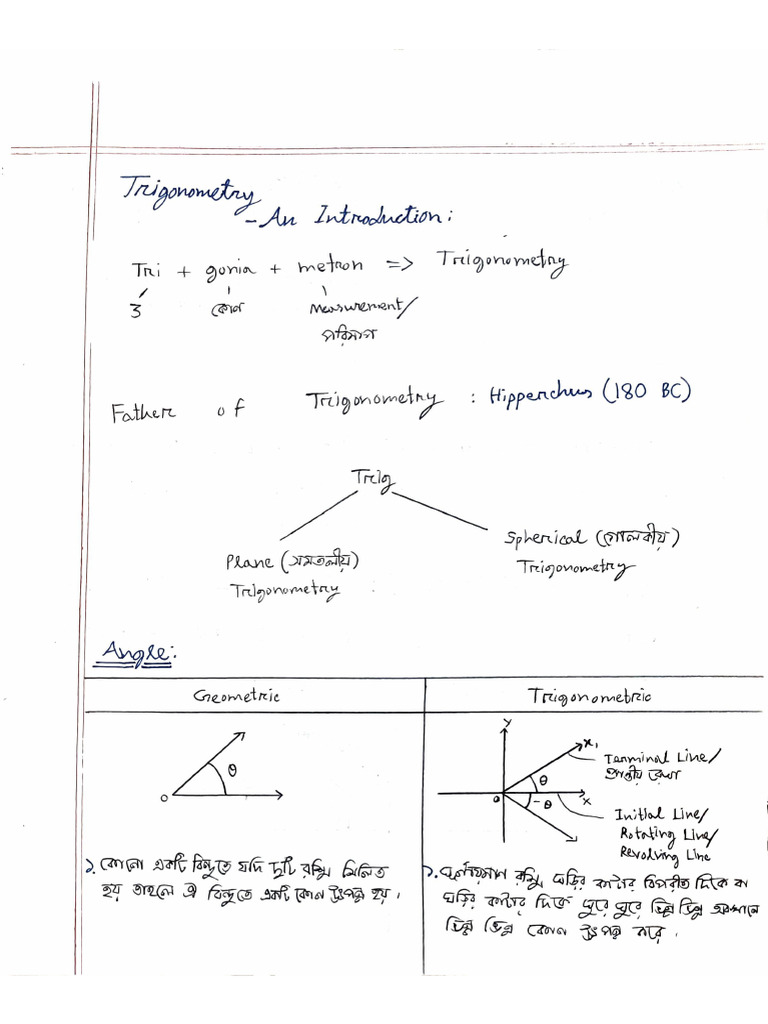 Trigonometry
- An Introduction:
Tri + gonia + metron => Trigonometry
3 কোণ measurement/
পরিমাপ
Father of Trigonometry : Hipperchus (180 BC)
Trig
Plane (সমতলীয়)
Trigonometry
Spherical (গোলকীয়)
Trigonometry
Angle:
Geometric
Trigonometric
θ
O
y
x₁
Terminal Line/
প্রান্তীয় রেখা
θ
O
-θ
x
Initial Line/
Rotating Line/
Revolving Line
১. কোনো একটি বিন্দুতে যদি দুটি রশ্মি মিলিত
হয় তাহলে ঐ বিন্দুতে একটি কোন উৎপন্ন হয়।
১. ঘূর্ণায়মান রশ্মি ঘড়ির কাটার বিপরীত দিকে বা
ঘড়ির কাটার দিকে ঘুরে ঘুরে ভিন্ন ভিন্ন অবস্থানে
ভিন্ন ভিন্ন কোণ উৎপন্ন করে।